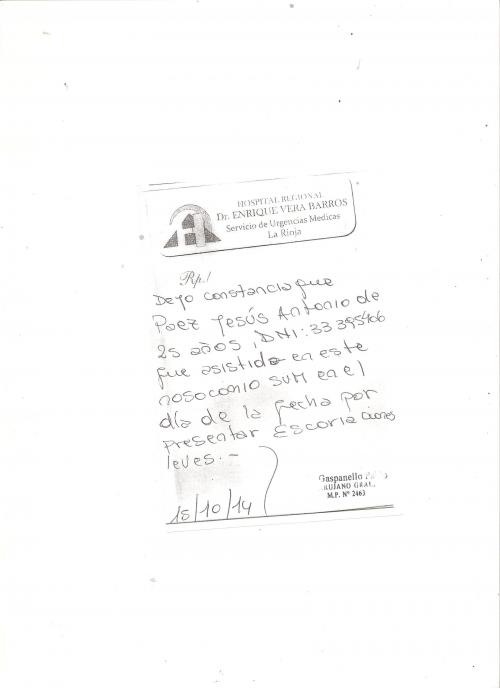 HOSPITAL REGIONAL
Dr. ENRIQUE VERA BARROS
Servicio de Urgencias Medicas
La Rioja
Rp./
Dejo constancia que
Paez Jesús Antonio de
25 años, DNI: 33395406
fue asistido en este
nosocomio SUM en el
día de la fecha por
presentar Escoriaciones
leves.-
18/10/14
Gaspanello
RUJANO GRAL.
M.P. Nº 2463